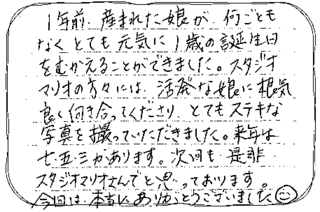 1年前、産まれた娘が、何ごとも
なく とても元気に1歳の誕生日
をむかえることができました。スタジオ
マリオの方々には、活発な娘に根気
良く付き合ってくださり、とてもステキな
写真を撮っていただきました。来年は
七五三があります。次回も、是非
スタジオマリオさんでと思っております。
今回は本当にありがとうございました